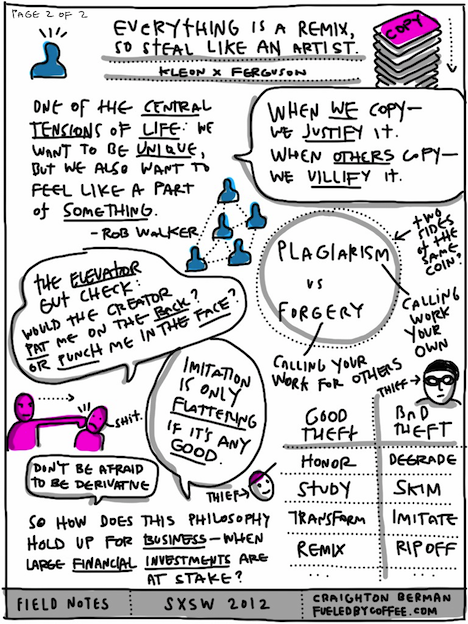 PAGE 2 OF 2
EVERYTHING IS A REMIX,
SO STEAL LIKE AN ARTIST.
KLEON X FERGUSON
COPY
ONE OF THE CENTRAL
TENSIONS OF LIFE: WE
WANT TO BE UNIQUE,
BUT WE ALSO WANT TO
FEEL LIKE A PART
OF SOMETHING.
- ROB WALKER
WHEN WE COPY—
WE JUSTIFY IT.
WHEN OTHERS COPY—
WE VILLIFY IT.
PLAGIARISM
VS
FORGERY
TWO
SIDES
OF THE
SAME
COIN?
CALLING
WORK
YOUR
OWN
CALLING YOUR
WORK FOR OTHERS
THE ELEVATOR
GUT CHECK:
WOULD THE CREATOR
PAT ME ON THE BACK?
OR PUNCH ME IN THE FACE?
IMITATION
IS ONLY
FLATTERING
IF IT'S ANY
GOOD.
SHIT.
DON'T BE AFRAID
TO BE DERIVATIVE
THIEF
THIEF
GOOD THEFT BAD THEFT
HONOR DEGRADE
STUDY SKIM
TRANSFORM IMITATE
REMIX RIP OFF
... ...
SO HOW DOES THIS PHILOSOPHY
HOLD UP FOR BUSINESS—WHEN
LARGE FINANCIAL INVESTMENTS ARE
AT STAKE?
FIELD NOTES
SXSW 2012
CRAIGHTON BERMAN
FUELEDBYCOFFEE.COM